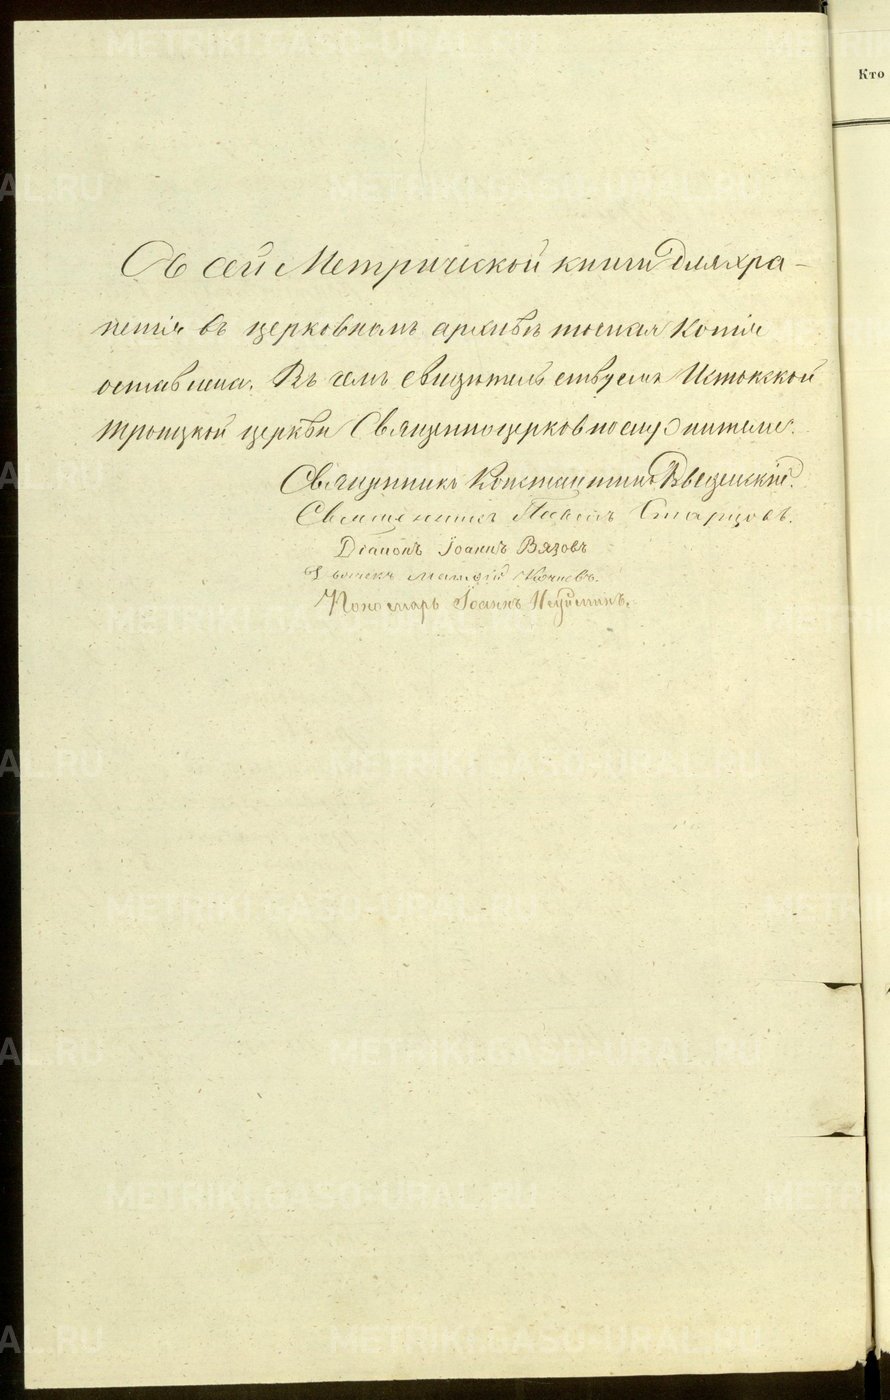 Съ сей Метрической книги для хра-
ненія въ церковномъ архивѣ точная Копія
оставлена. Въ чемъ свидѣтельствуемъ Истокской
Троицкой церкви Священноцерковнослужители.
Священникъ Константинъ
Священникъ Павелъ Старцовъ.
Діаконъ Іоаннъ Вязовъ
Дьячекъ
Пономарь Іоаннъ Неуйминъ.
Кто
METRIKI.GASO-URAL.RU